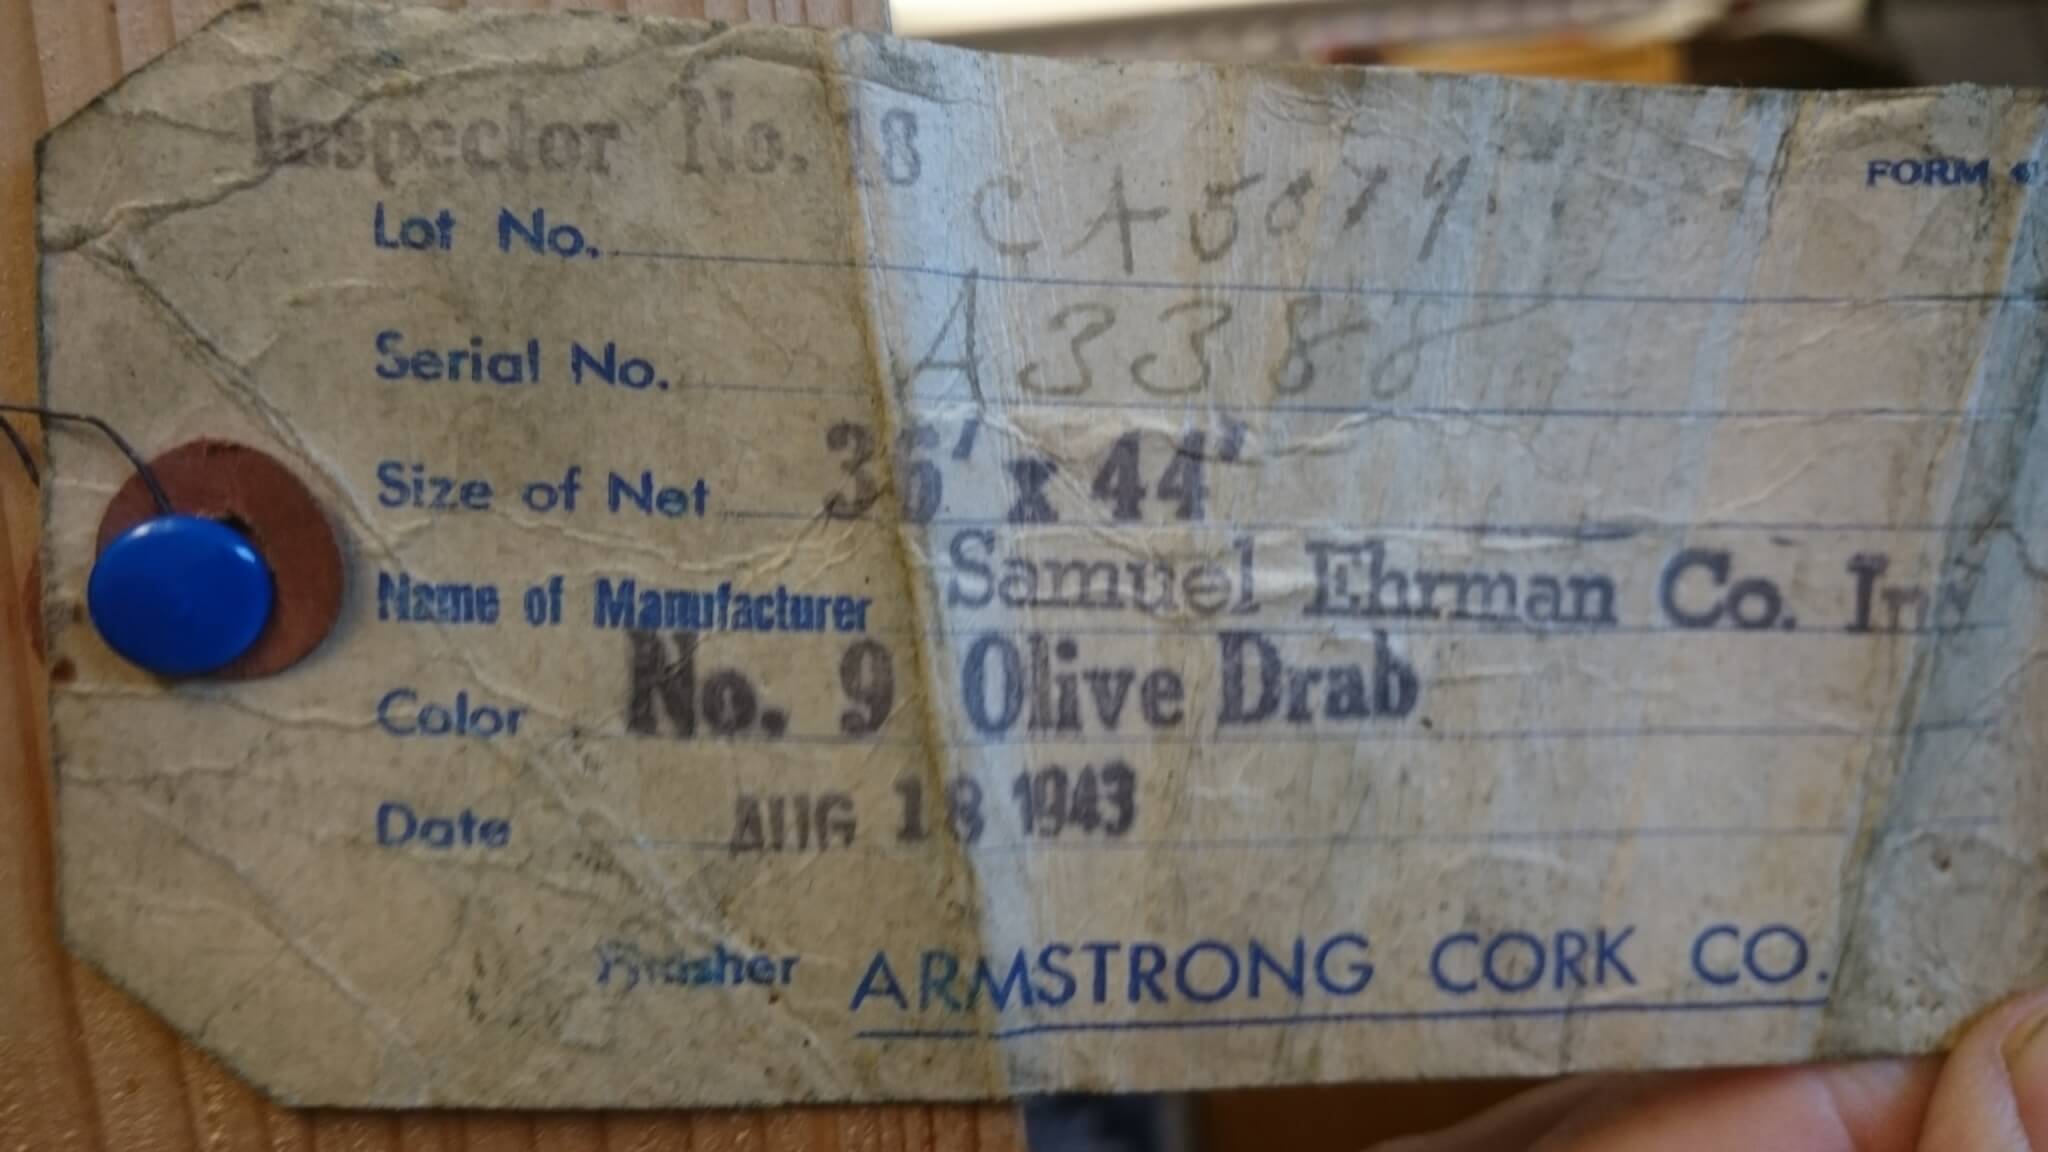 Inspector No. 18
FORM
Lot No. CA5079
Serial No. A3388
Size of Net 36' x 44'
Name of Manufacturer Samuel Ehrman Co. Inc
Color No. 9 Olive Drab
Date AUG 18 1943
Finisher ARMSTRONG CORK CO.